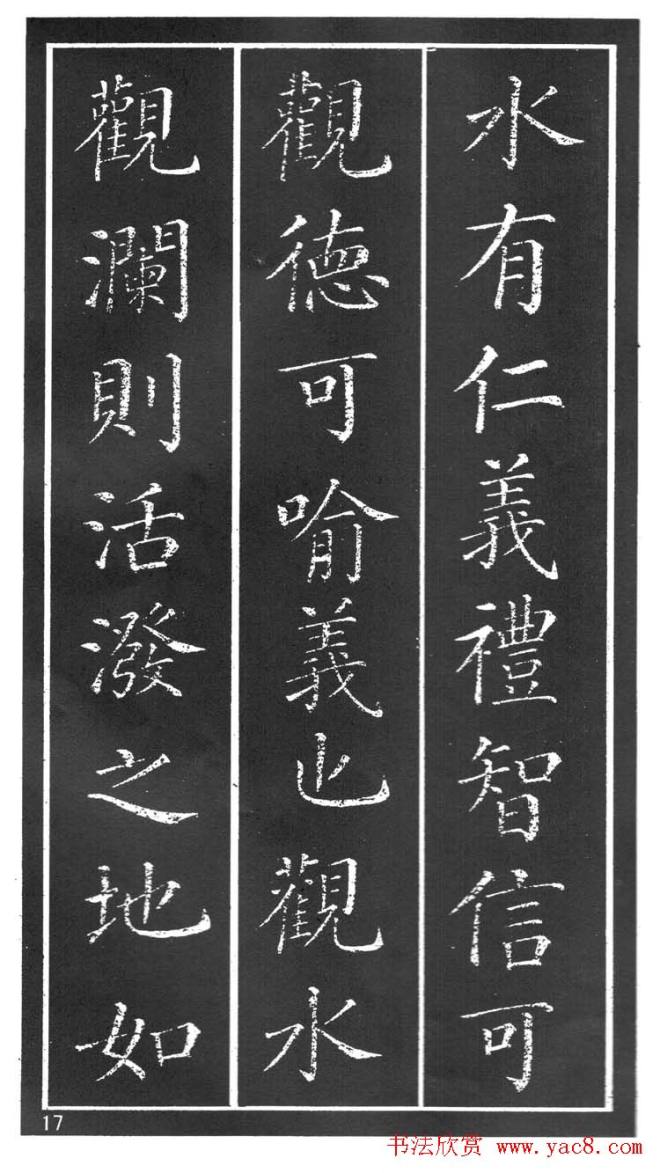 水有仁義禮智信可
觀德可喻義也觀水
觀瀾則活潑之地如
17
书法欣赏 www.yac8.com